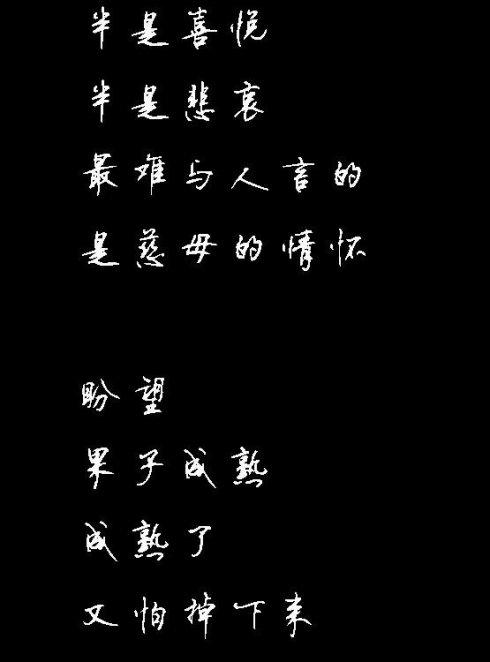 半是喜悦
半是悲哀
最难与人言的
是慈母的情怀
盼望
果子成熟
成熟了
又怕掉下来